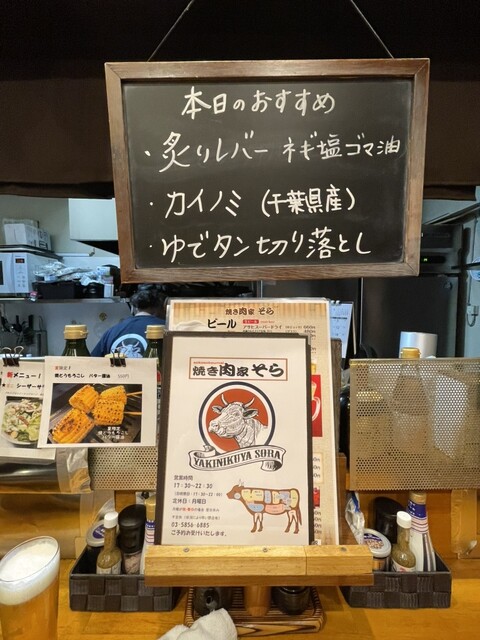 本日のおすすめ
・炙りレバー ネギ塩ゴマ油
・カイノミ (千葉県産)
・ゆでタン切り落とし
焼き肉家 そら
ビール
アサヒスーパードライ
焼き肉家そら
YAKINIKUYA SORA
営業時間
17:30~22:30
定休日：月曜日
03-5856-6885
ご予約お受けいたします。
新メニュー!
シーザーサ
焼とうもろこし バター醤油